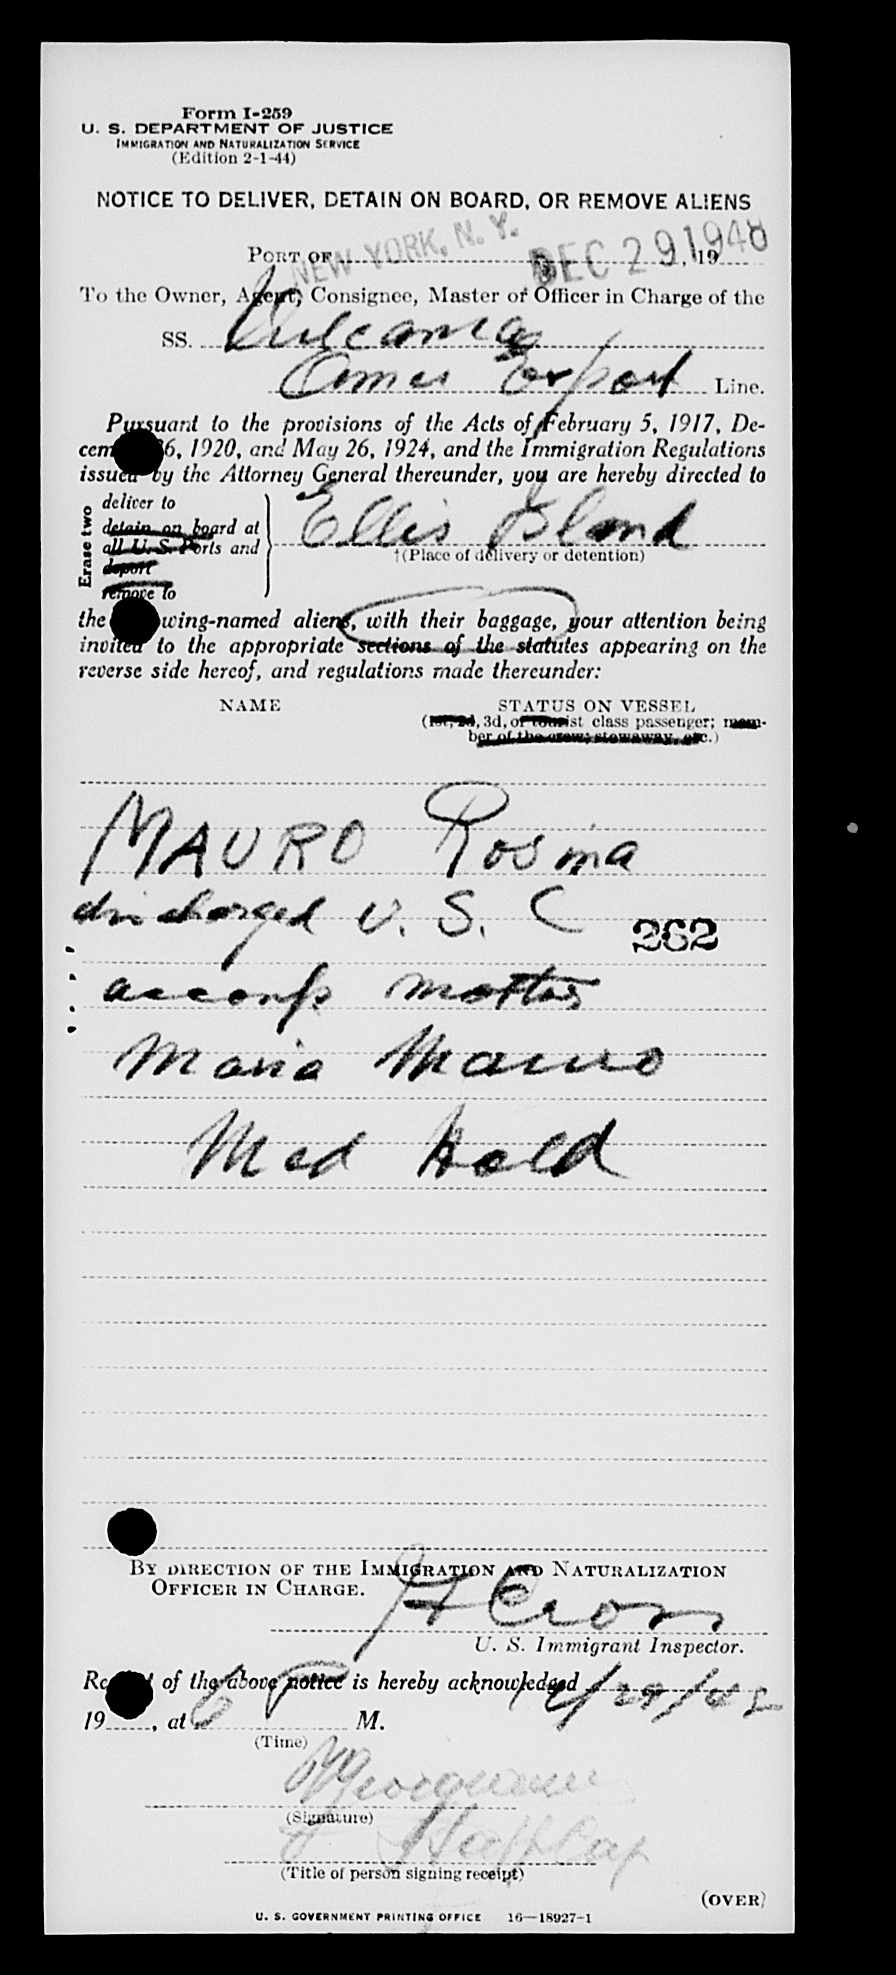 Form I-259
U. S. DEPARTMENT OF JUSTICE
IMMIGRATION AND NATURALIZATION SERVICE
(Edition 2-1-44)
NOTICE TO DELIVER, DETAIN ON BOARD, OR REMOVE ALIENS
PORT OF NEW YORK, N. Y. DEC 29 1948, 19
To the Owner, Agent, Consignee, Master or Officer in Charge of the
SS. Vulcania
Amer Export Line.
Pursuant to the provisions of the Acts of February 5, 1917, De-
cem 26, 1920, and May 26, 1924, and the Immigration Regulations
issued by the Attorney General thereunder, you are hereby directed to
Erase two
deliver to
detain on board at
all U. S. Ports and
deport
remove to
Ellis Island
†(Place of delivery or detention)
the wing-named aliens, with their baggage, your attention being
invited to the appropriate sections of the statutes appearing on the
reverse side hereof, and regulations made thereunder:
NAME STATUS ON VESSEL
(1st, 2d, 3d, or tourist class passenger; mem-
ber of the crew; stowaway, etc.)
MAURO Rosina
discharged U. S. C
262
accomp mother
Maria Mauro
Med Hold
BY DIRECTION OF THE IMMIGRATION AND NATURALIZATION
OFFICER IN CHARGE.
U. S. Immigrant Inspector.
Re of the above notice is hereby acknowledged 12/29/48
19, at 6 P M.
(Time)
(Signature)
(Title of person signing receipt)
(OVER)
U. S. GOVERNMENT PRINTING OFFICE 16—18927-1